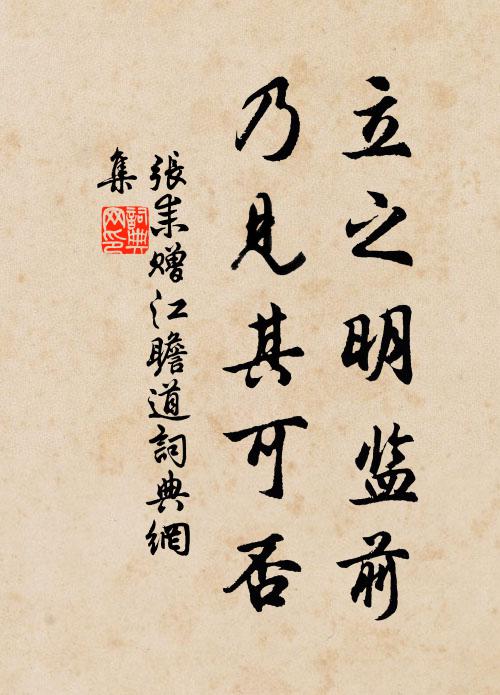 立之明监前
乃見其可否
張耒贈江瞻道詞典網
集
詞典网印